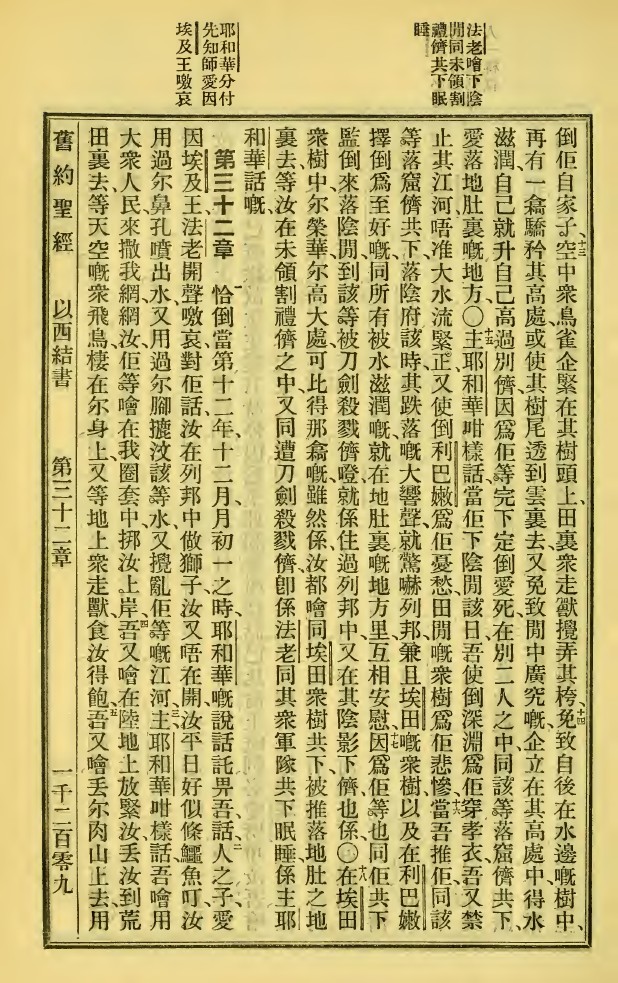 法老噲下陰
閒同未領割
禮儕共下眠
睡
耶和華分付
先知師愛因
埃及王噭哀
倒佢自家子、十三空中衆鳥雀企緊在其樹頭上、田裏衆走獸攪弄其桍、十四免致自後在水邊嘅樹中、
再有一樖驕矜其高處或使其樹尾透到雲裏去又免致閒中廣究嘅企立在其高處中得水
滋潤自己就升自己高過別儕因爲佢等完下定倒愛死在別二人之中同該等落窟儕共下
愛落地肚裏嘅地方、〇十五主耶和華咁樣話、當佢下陰閒該日、吾使倒深淵爲佢穿孝衣、吾又禁
止其江河唔准大水流緊、正又使倒利巴嫩爲佢憂愁田閒嘅衆樹爲佢悲慘、十六當吾推佢同該
等落窟儕共下、落陰府該時其跌落嘅大響聲、就驚嚇列邦、兼且埃田嘅衆樹以及在利巴嫩
擇倒爲至好嘅、同所有被水滋潤嘅就在地肚裏嘅地方里互相安慰、十七因爲佢等也同佢共下
監倒來落陰閒、到該等被刀劍殺戮儕嶝、就係住過列邦中、又在其陰影下儕也係、〇十八在埃田
衆樹中尔榮華尔高大處可比得那樖嘅、雖然係汝都噲同埃田衆樹共下被推落地肚之地
裏去、等汝在未領割禮儕之中、又同遭刀劍殺戮儕、卽係法老同其衆軍隊共下眠睡、係主耶
和華話嘅、
第三十二章 一恰倒當第十二年十二月月初一之時、耶和華嘅說話託畀吾話、二人之子、愛
因埃及王法老開聲噭哀對佢話、汝在列邦中做獅子、汝又唔在開、汝平日好似條鱷魚叮汝
用過尔鼻孔噴出水、又用過尔腳摝汶該等水、又攪亂佢等嘅江河、三主耶和華咁樣話、吾噲用
大衆人民來撒我網網汝、佢等噲在我圈套中挷汝上岸、四吾又噲在陸地上放緊汝、丟汝到荒
田裏去、等天空嘅衆飛鳥棲在尔身上、又等地上衆走獸食汝得飽、五吾又噲丟尔肉山上去、用
舊約聖經 以西結書 第三十二章 一千二百零九